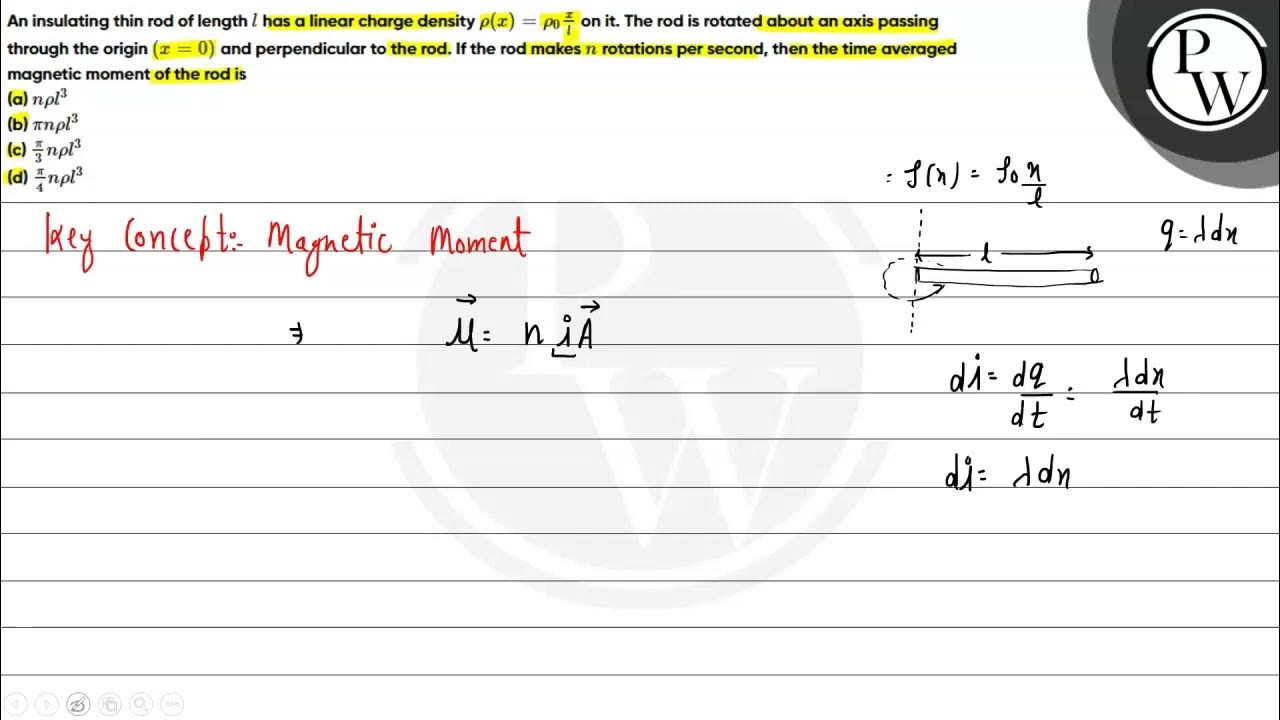 An insulating thin rod of length l has a linear charge density ρ(x) = ρ₀ x/l on it. The rod is rotated about an axis passing
through the origin (x = 0) and perpendicular to the rod. If the rod makes n rotations per second, then the time averaged
magnetic moment of the rod is
(a) nρl³
(b) πnρl³
(c) π/3 nρl³
(d) π/4 nρl³
P
W
= ρ(x) = ρ₀ x/l
Key Concept:- Magnetic Moment
q = λdx
l
⇒ M⃗ = n i A⃗
di = dq/dt = λdx/dt
di = λdx